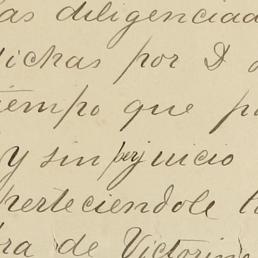 as diligenciad
dichas por D
tiempo que p
y sin perjuicio
perteciendole l
ra de Victorin